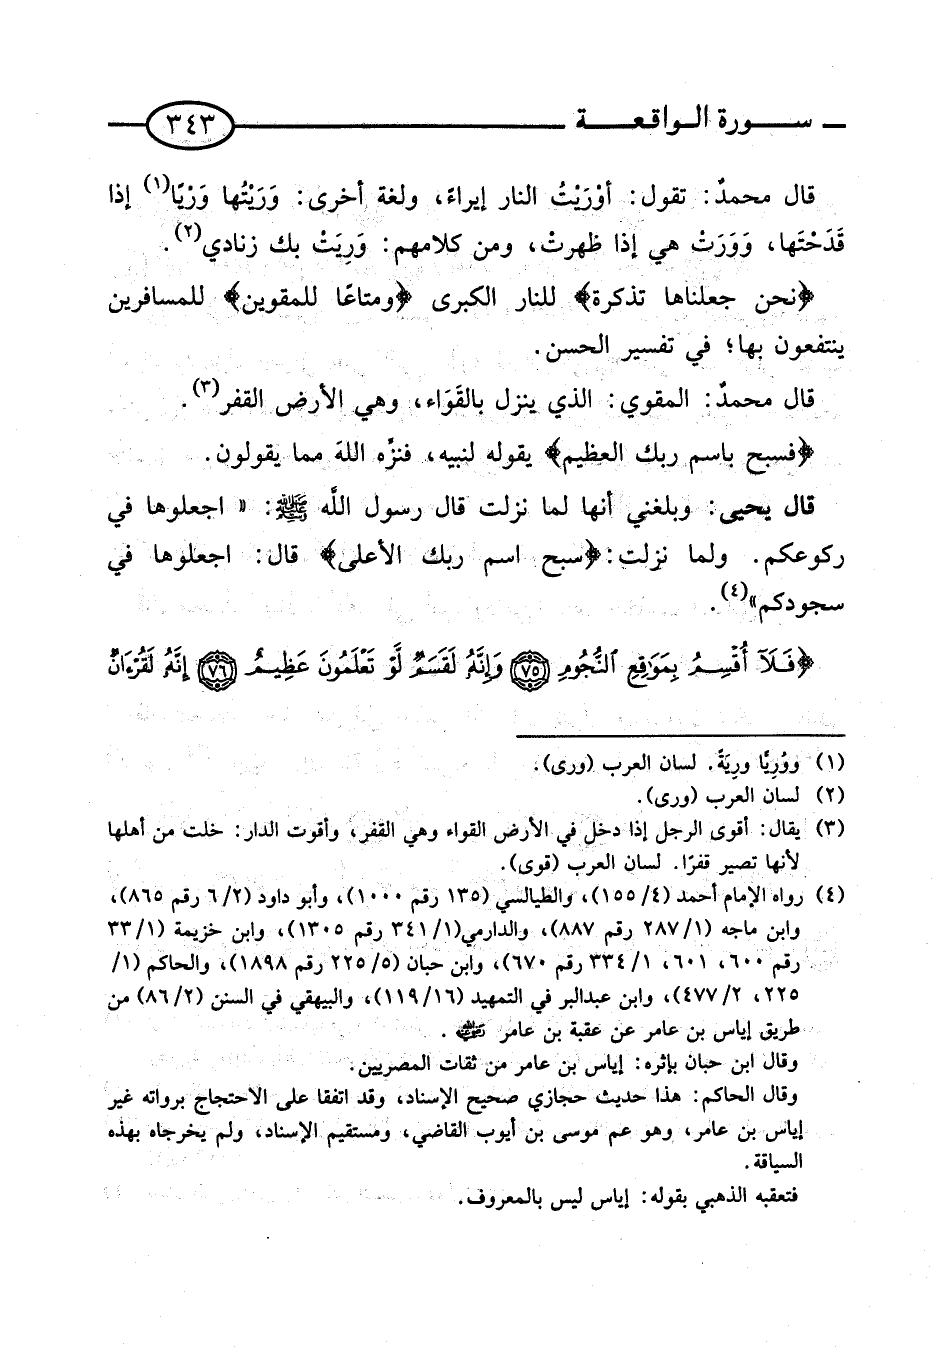 سورة الواقعة ٣٤٣
قال محمدٌ: تقول: أوْرَيْتُ النار إيراءً، ولغة أخرى: وَرَيْتُها وَرْيًا(١) إذا
قَدَحْتَها، وَوَرَتْ هي إذا ظهرتْ، ومن كلامهم: وَرِيَتْ بك زنادي(٢).
﴿نحن جعلناها تذكرة﴾ للنار الكبرى ﴿ومتاعًا للمقوين﴾ للمسافرين
ينتفعون بها؛ في تفسير الحسن.
قال محمدٌ: المقوي: الذي ينزل بالقَوَاء، وهي الأرض القفر(٣).
﴿فسبح باسم ربك العظيم﴾ يقوله لنبيه، فنزِّه اللهَ مما يقولون.
قال يحيى: وبلغني أنها لما نزلت قال رسول اللَّه ﷺ: « اجعلوها في
ركوعكم. ولما نزلت: ﴿سبح اسم ربك الأعلى﴾ قال: اجعلوها في
سجودكم»(٤).
﴿فَلَآ أُقْسِمُ بِمَوَٰقِعِ ٱلنُّجُومِ ٧٥ وَإِنَّهُۥ لَقَسَمٌ لَّوْ تَعْلَمُونَ عَظِيمٌ ٧٦ إِنَّهُۥ لَقُرْءَانٌ
(١) ووُرِيًّا ورِيَةً. لسان العرب (ورى).
(٢) لسان العرب (ورى).
(٣) يقال: أقوى الرجل إذا دخل في الأرض القواء وهي القفر، وأقوت الدار: خلت من أهلها
لأنها تصير قفرًا. لسان العرب (قوى).
(٤) رواه الإمام أحمد (٤/ ١٥٥)، والطيالسي (١٣٥ رقم ١٠٠٠)، وأبو داود (٦/٢ رقم ٨٦٥)،
وابن ماجه (٢٨٧/١ رقم ٨٨٧)، والدارمي(٣٤١/١ رقم ١٣٠٥)، وابن خزيمة (٣٣/١
رقم ٦٠٠، ٦٠١، ٣٣٤/١ رقم ٦٧٠)، وابن حبان (٢٢٥/٥ رقم ١٨٩٨)، والحاكم (١/
٢٢٥، ٤٧٧/٢)، وابن عبدالبر في التمهيد (١١٩/١٦)، والبيهقي في السنن (٨٦/٢) من
طريق إياس بن عامر عن عقبة بن عامر رضي الله عنه .
وقال ابن حبان بإثره: إياس بن عامر من ثقات المصريين.
وقال الحاكم: هذا حديث حجازي صحيح الإسناد، وقد اتفقا على الاحتجاج برواته غير
إياس بن عامر، وهو عم موسى بن أيوب القاضي، ومستقيم الإسناد، ولم يخرجاه بهذه
السياقة.
فتعقبه الذهبي بقوله: إياس ليس بالمعروف.